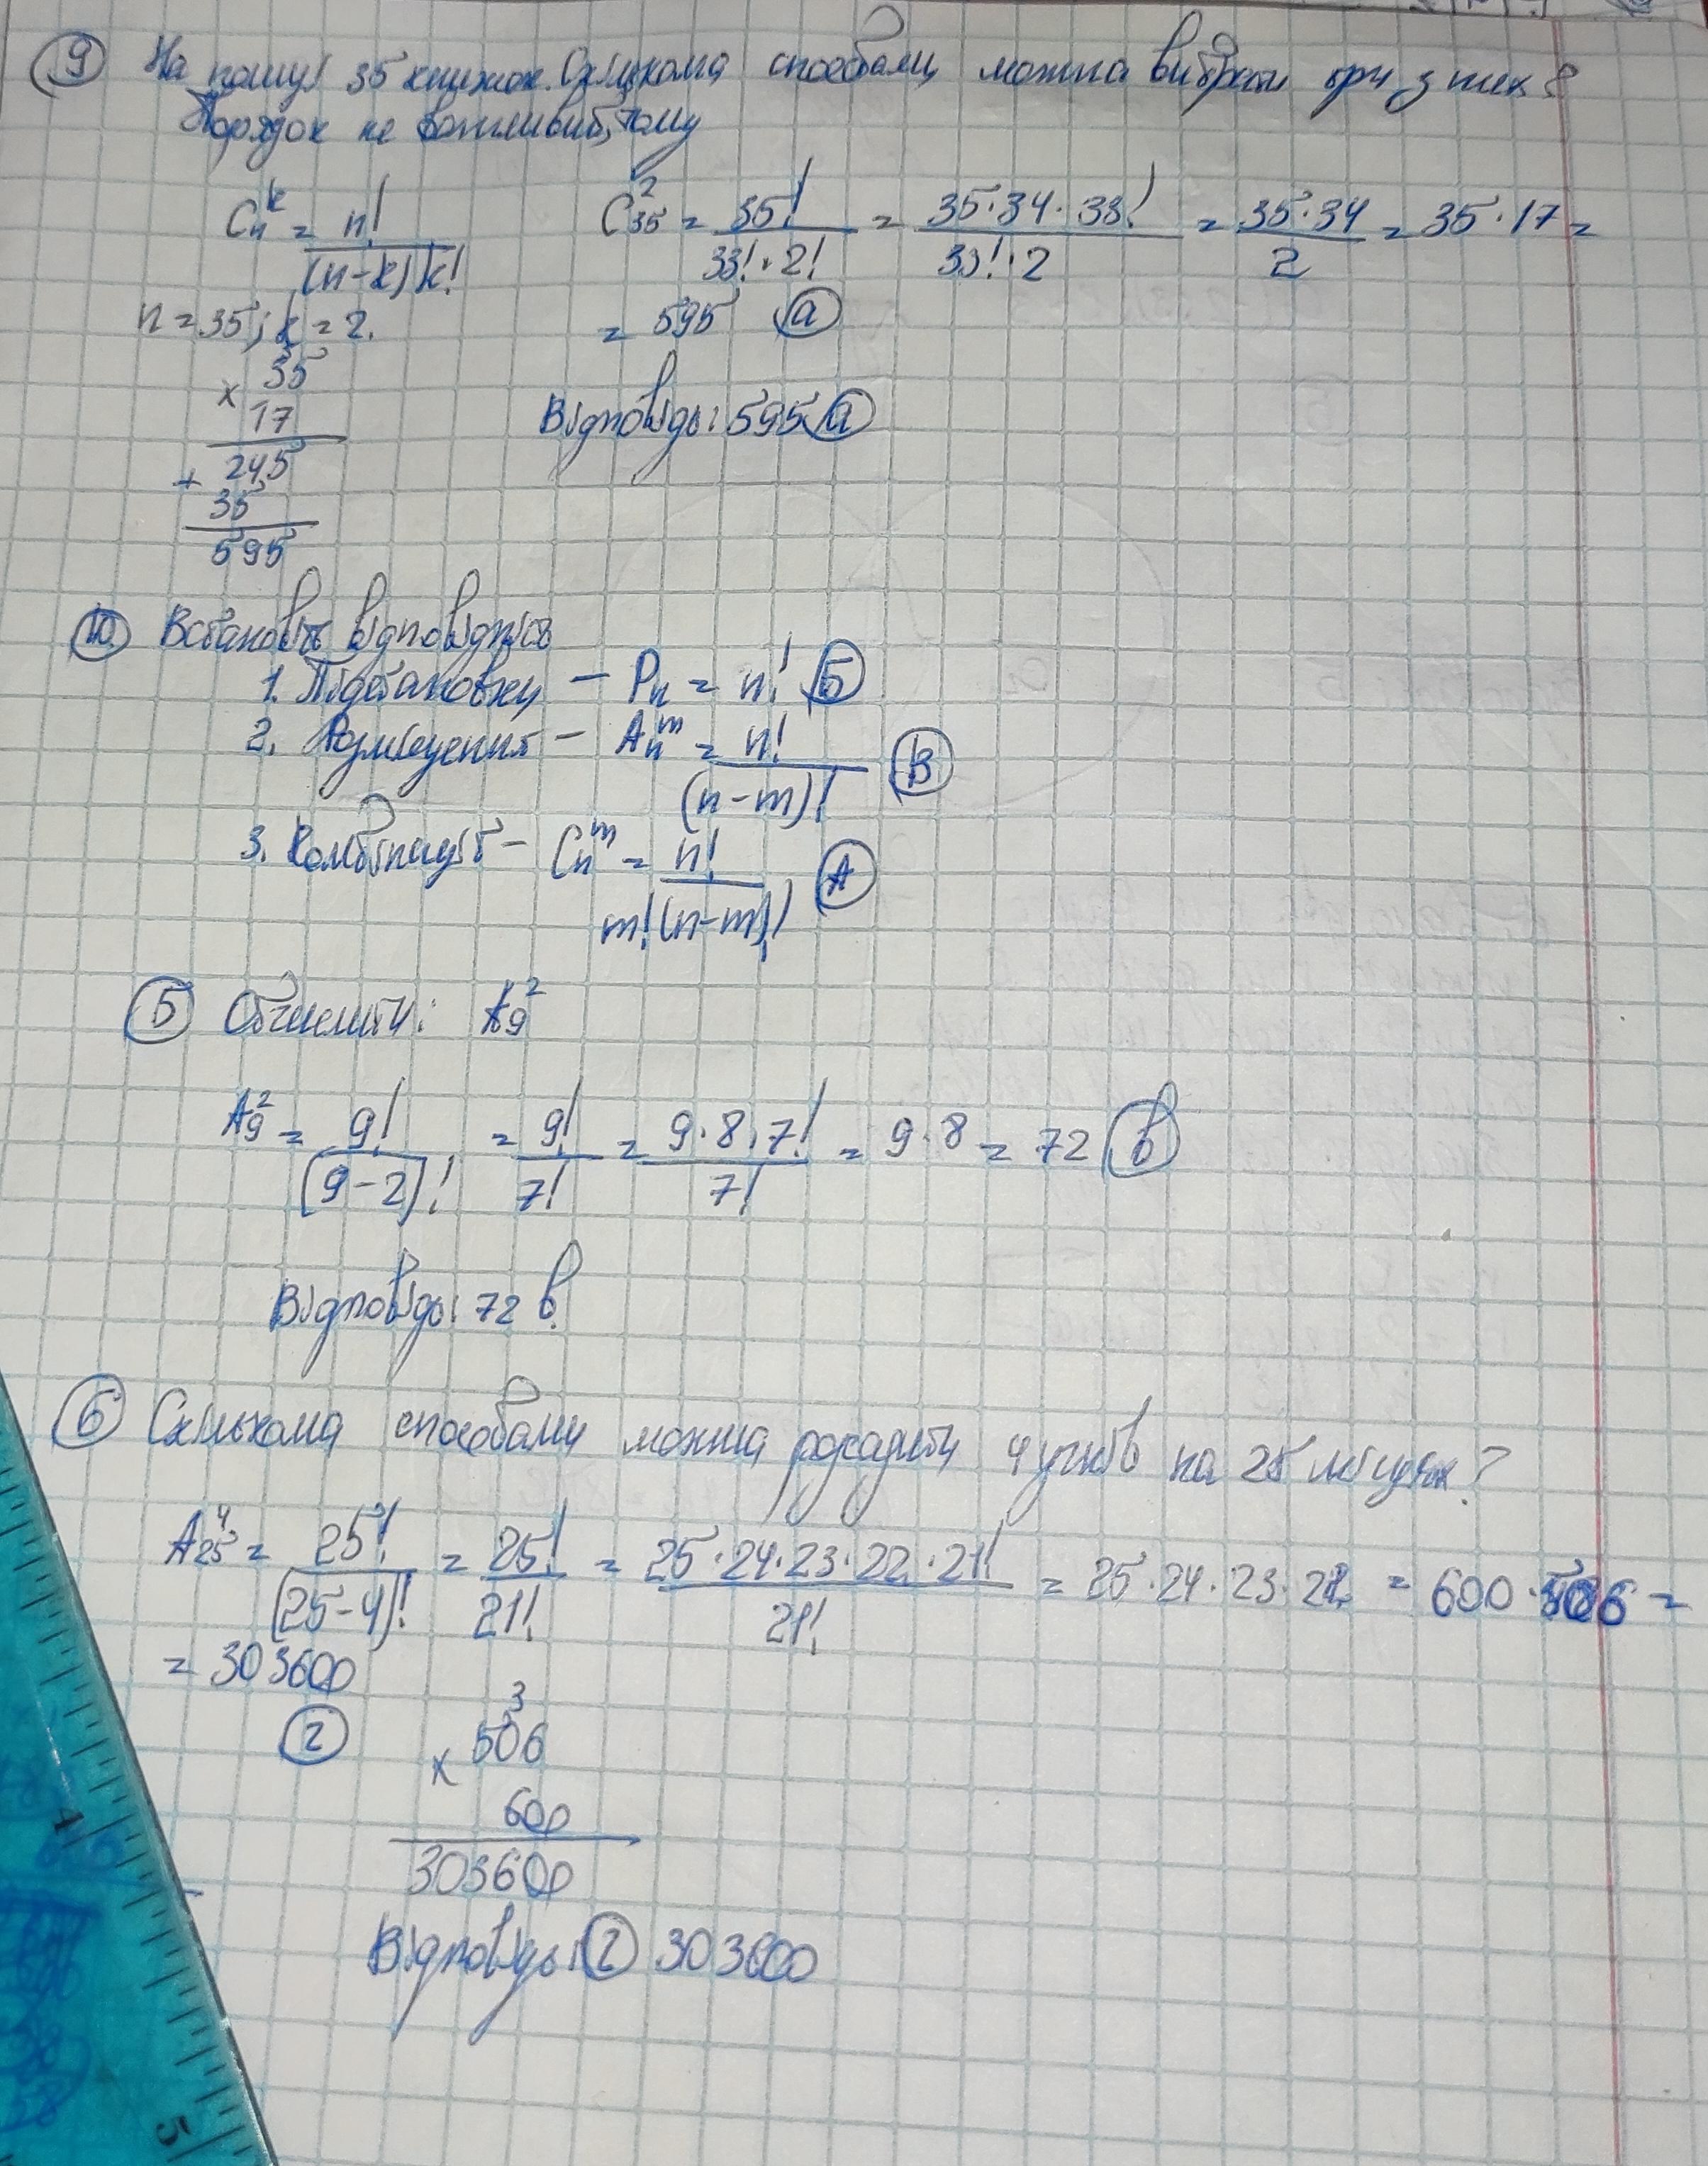 9 На полиці 35 книжок. Скількома способами можна вибрати три з них?
Порядок не важливий, тому
C_n^k = n! / (n-k)! k!
n = 35; k = 2.
C_35^2 = 35! / 33! · 2! = 35 · 34 · 33! / 33! · 2 = 35 · 34 / 2 = 35 · 17 =
= 595 а
35
× 17
245
+ 35
595
Відповідь: 595 а
10. Встановіть відповідність
1. Підстановки – P_n = n! Б
2. Розміщення – A_n^m = n! / (n-m)! В
3. Комбінації – C_n^m = n! / m!(n-m)! А
5 Обчислити: A_9^2
A_9^2 = 9! / (9-2)! = 9! / 7! = 9 · 8 · 7! / 7! = 9 · 8 = 72 в
Відповідь: 72 в
6 Скількома способами можна розсадити 4 учнів на 25 місцях?
A_25^4 = 25! / (25-4)! = 25! / 21! = 25 · 24 · 23 · 22 · 21! / 21! = 25 · 24 · 23 · 22 = 600 · 506 =
= 303600
г
3
506
× 600
303600
Відповідь: г 303600
4
5